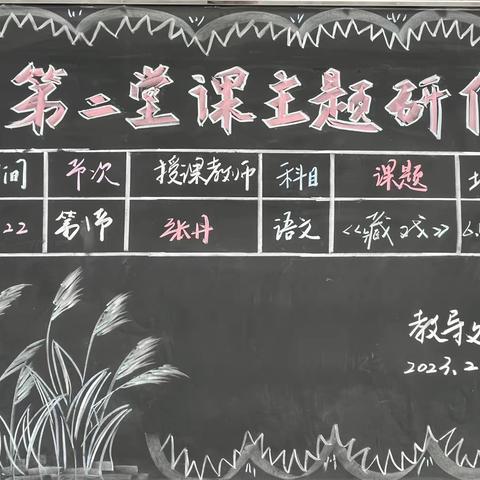 第二堂课主题研
间 节次 授课教师 科目 课题
22 第1节 张丹 语文 《藏戏》 6.
教导
2023.2